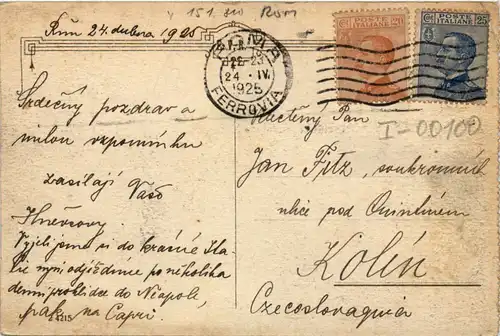 151.310 Rom
Řím 24. dubna 1925
POSTE ITALIANE 20
POSTE ITALIANE 25
ROMA
22-23
24 · IV
1925
FERROVIA
I-00100
Srdečný pozdrav a
milou vzpomínku
zasílají Vaši
Vyjeli jsme si do krásné Ita-
lie nyní odjedeme po několika
denní prohlídce do Neapole,
pak na Capri
Vdectěný Pan
Jan Fitz, soukromník
ulice pod
Kolín
Czecoslovaquia